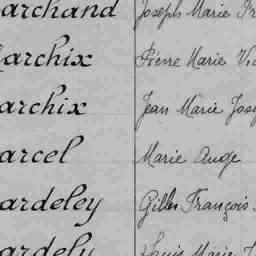 archand Joseph Marie Fr
archix Pierre Marie Vic
archix Jean Marie Jose
arcel Marie Ange
ardeley Gilles François
ardely Louis Marie